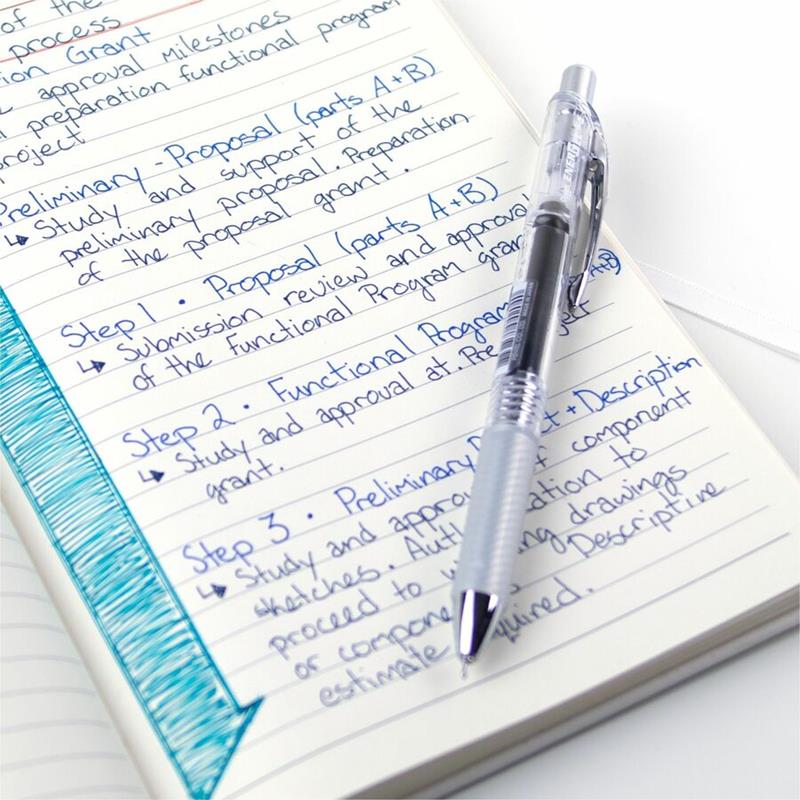 of the
process
ion Grant
approval milestones
preparation functional program
project
Preliminary - Proposal (parts A+B)
↳ Study and support of the
preliminary proposal. Preparation
of the proposal grant.
Step 1 • Proposal (parts A+B)
↳ Submission review and approval
of the Functional Program grant
Step 2 • Functional Program A+B)
↳ Study and approval at. Pre ject
grant.
Step 3 • Preliminary t + Description
↳ Study and appro of component
sketches. Aut ation to
proceed to w ng drawings
or compone s Descriptive
estimate quired.
ENERGEL